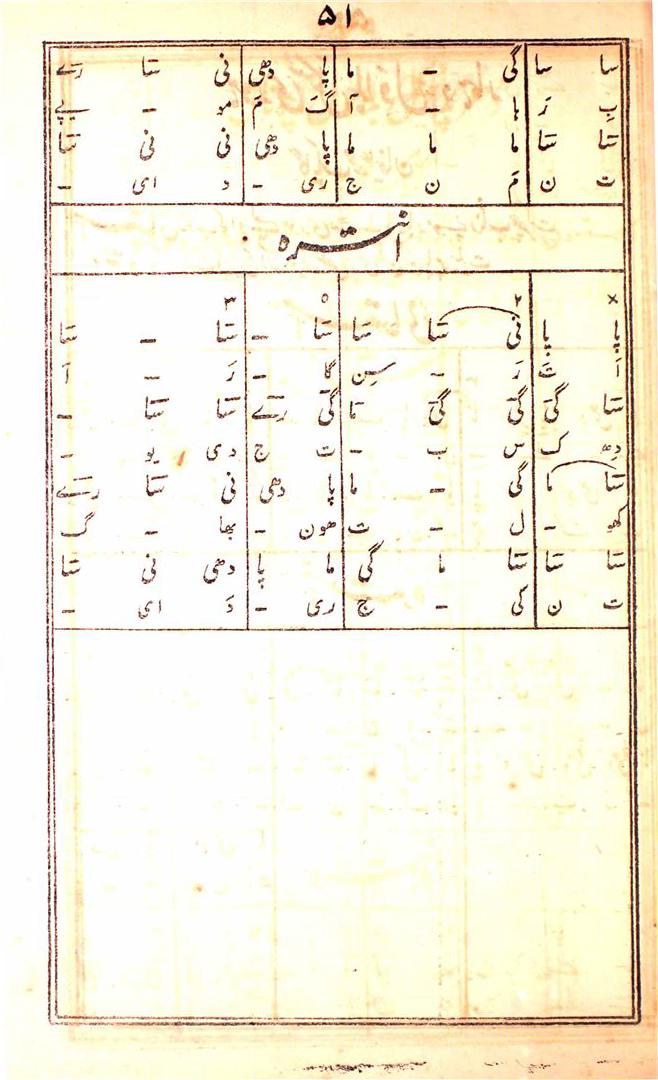 ۵۱
سا سا گی - ما پا دھی نی سَا رے
پ رَ ہا - آ گ مَ مو - پے
سَا سَا ما ما ما پا دھی نی نی سَا
ت ن مَ ن ج ری - د ای -
انترہ
× ۲ ۰ ۳
پا پا نی سَا سَا سَا - سَا - سَا
اَ تَ رَ - سِن گا - رَ - اَ
سَا گی گی گی مَا گی رے سَا سَا -
دھ ک س ب - ت ج دی یو -
سَا ما گی - ما پا دھی نی سَا رے
کھو - ل - ت ھون - بھا - گ
سَا سَا سَا ما گی ما پا دھی نی سَا
ت ن کی - ج ری - دَ ای -